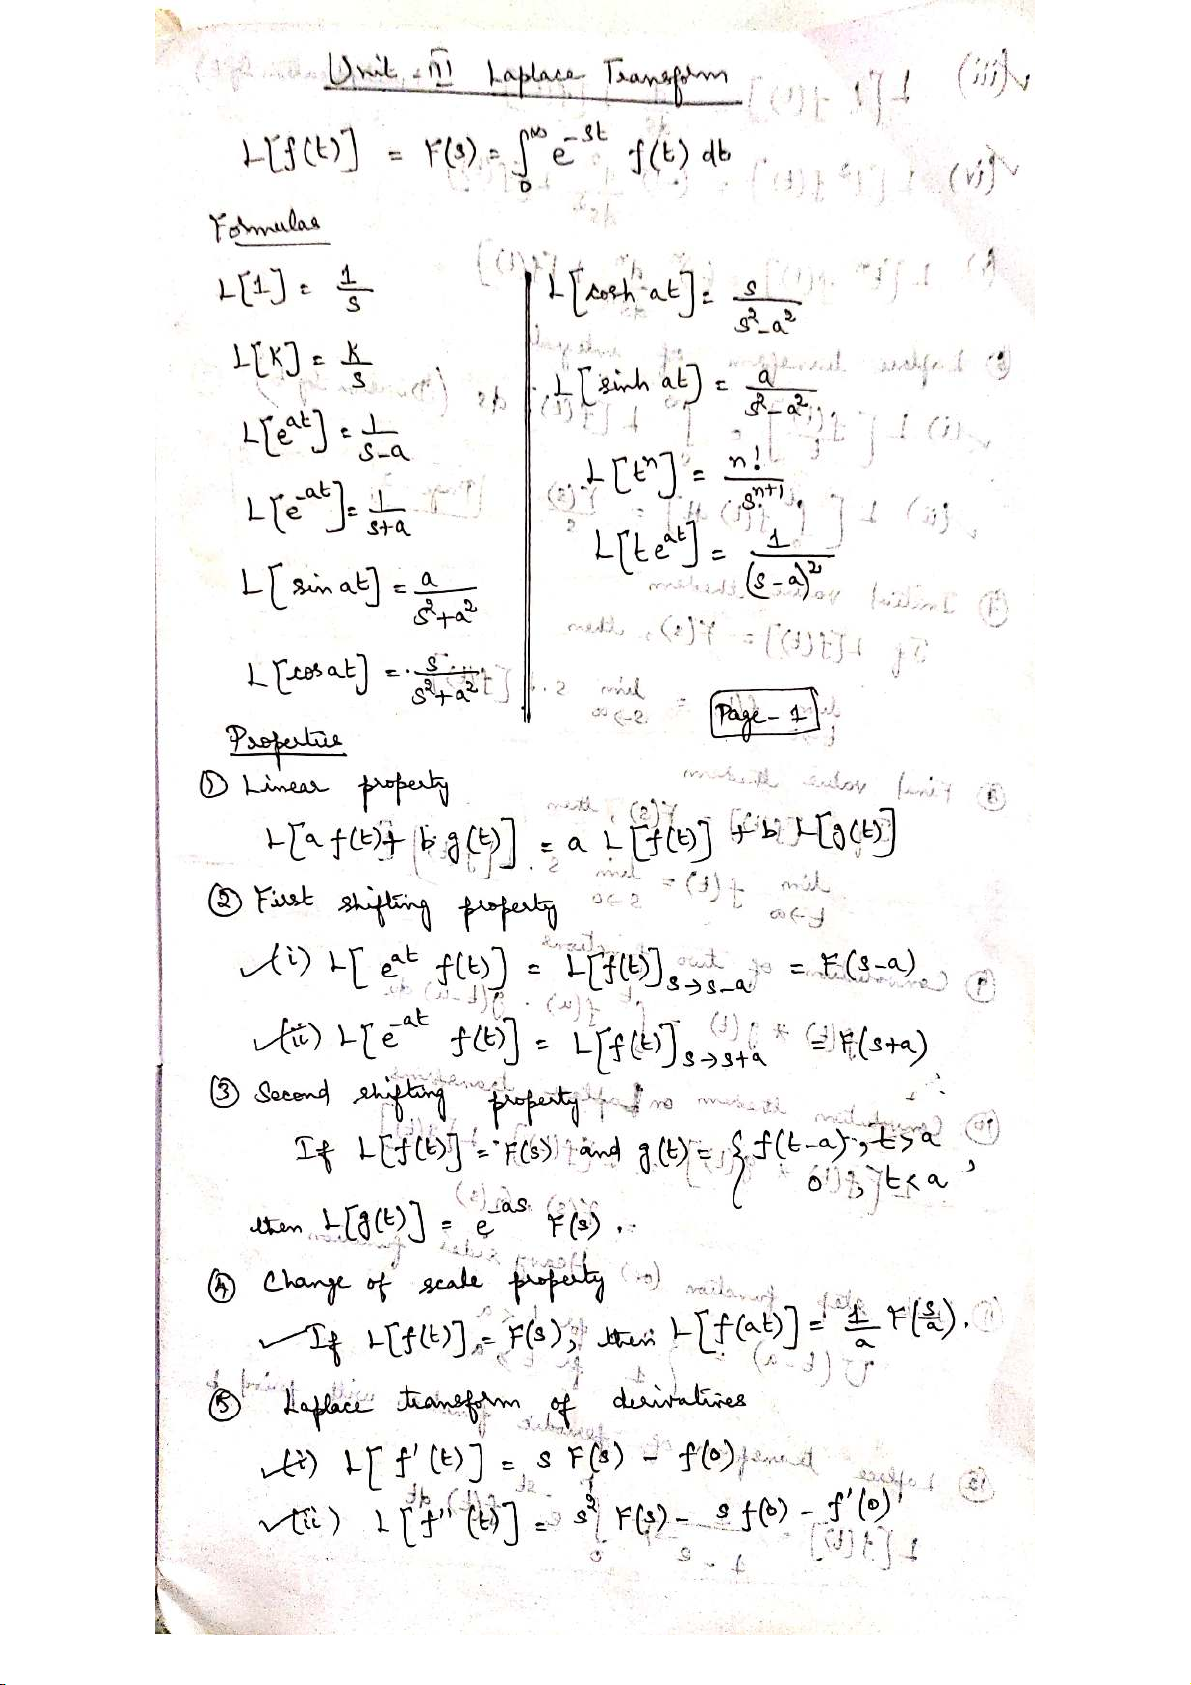 Unit - III Laplace Transform
L[f(t)] = F(s) = ∫₀^∞ e^{-st} f(t) dt
Formulas
L[1] = 1/s
L[K] = K/s
L[e^{at}] = 1/(s-a)
L[e^{-at}] = 1/(s+a)
L[sin at] = a/(s²+a²)
L[cos at] = s/(s²+a²)
L[cosh at] = s/(s²-a²)
L[sinh at] = a/(s²-a²)
L[t^n] = n!/s^{n+1}
L[t e^{at}] = 1/(s-a)²
Page - 1
Properties
① Linear property
L[a f(t) + b g(t)] = a L[f(t)] + b L[g(t)]
② First shifting property
(i) L[e^{at} f(t)] = L[f(t)]_{s→s-a} = F(s-a)
(ii) L[e^{-at} f(t)] = L[f(t)]_{s→s+a} = F(s+a)
③ Second shifting property
If L[f(t)] = F(s) and g(t) = { f(t-a), t>a
0, t<a,
then L[g(t)] = e^{-as} F(s).
④ Change of scale property
If L[f(t)] = F(s), then L[f(at)] = 1/a F(s/a).
⑤ Laplace transform of derivatives
(i) L[f'(t)] = s F(s) - f(0)
(ii) L[f''(t)] = s² F(s) - s f(0) - f'(0)